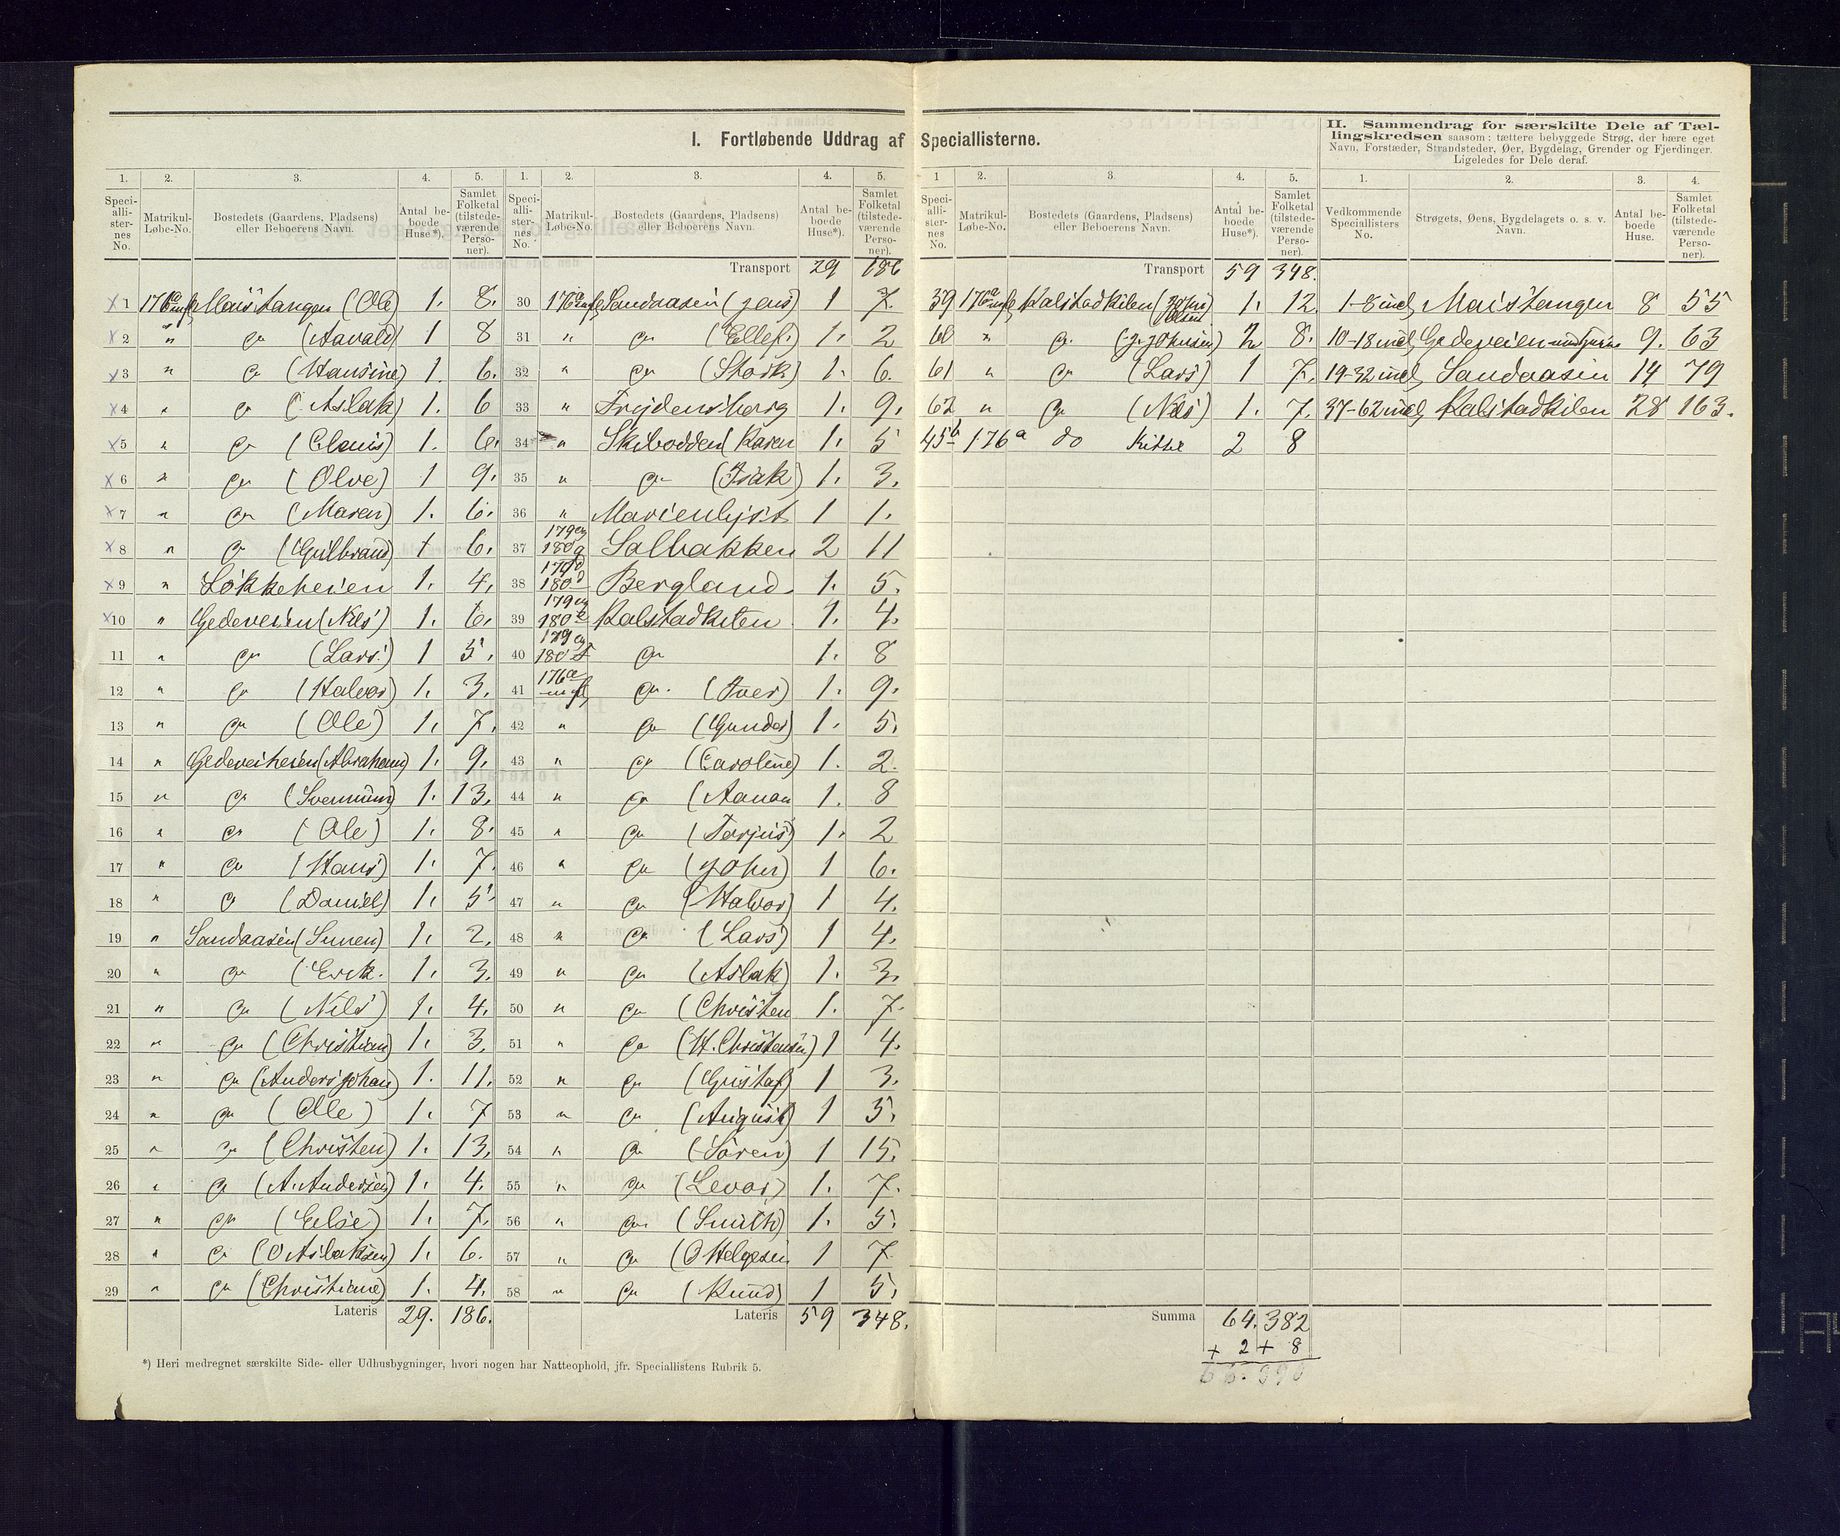 I. Fortløbende Uddrag af Speciallisterne.
II. Sammendrag for særskilte Dele af Tællingskredsen saasom: tættere bebyggede Strøg, der bære eget Navn, Forstæder, Strandsteder, Øer, Bygdelag, Grender og Fjerdinger. Ligeledes for Dele deraf.
1. 2. 3. 4. 5.
Speciallisternes No. Matrikul-Løbe-No. Bostedets (Gaardens, Pladsens) eller Beboerens Navn. Antal beboede Huse*). Samlet Folketal (tilstedeværende Personer).
1 176a Maistangen (Ole) 1. 8.
2 " do (Aavald) 1 8
3 " do (Hansine) 1. 6.
4 " do (Aslak) 1. 6
5 " do (Claus) 1. 6.
6 " do (Olve) 1 9.
7 " do (Maren) 1. 6.
8 " do (Gulbrand) 1 6.
9 " Løkkeheien 1. 4.
10 " Gedeveien (Nils) 1. 6.
11 " do (Lars) 1 5.
12 " do (Halvor) 1. 3.
13 " do (Ole) 1. 7.
14 " Gedeveiheien (Abraham) 1. 9.
15 " do 1. 13.
16 " do (Ole) 1. 8.
17 " do (Hans) 1. 7.
18 " do (Daniel) 1. 5.
19 " Sandaasen 1. 2.
20 " do (Erik. 1. 3.
21 " do (Nils) 1. 4.
22 " do (Christian) 1. 3.
23 " do (Anders Johan) 1. 11.
24 " do (Olle) 1. 7
25 " do (Christen) 1. 13.
26 " do (A. Andersen) 1. 4.
27 " do (Else) 1. 7.
28 " do (O Aslaksen) 1. 6.
29 " do (Christiane) 1. 4.
Lateris 29. 186.
1. 2. 3. 4. 5.
Speciallisternes No. Matrikul-Løbe-No. Bostedets (Gaardens, Pladsens) eller Beboerens Navn. Antal beboede Huse*). Samlet Folketal (tilstedeværende Personer).
Transport 29 186
30 176a Sandaasen (Jens) 1 7.
31 " do (Ellef. 1. 2
32 " do (Stork) 1. 6.
33 " Frydensborg 1. 9.
34 " Skibodden (Karen 1. 5
35 " do (Isak) 1. 3.
36 " Marienlyst 1 1.
37 179 180g Solbakken 2 11
38 179d 180d Bergland. 1. 5.
39 179 180e Kalstadkilen 1. 4.
40 179 180f do 1. 8
41 176a do. (Iver) 1. 9.
42 " do (Gunder) 1. 5.
43 " do (Caroline) 1. 2.
44 " do (Aanon 1. 8
45 " do (Terjus) 1. 2
46 " do (John) 1 6.
47 " do (Halvor) 1 4.
48 " do (Lars) 1 4.
49 " do (Aslak) 1. 3.
50 " do (Christen 1. 7.
51 " do (H. Christensen) 1 4.
52 " do (Gustaf) 1 3.
53 " do (August) 1 5.
54 " do (Søren) 1 15.
55 " do (Levor) 1. 7.
56 " do (Smith) 1. 5.
57 " do (O Helgesen 1 7
58 " do (Knud) 1 5.
Lateris 59 348.
*) Heri medregnet særskilte Side- eller Udhusbygninger, hvori nogen har Natteophold, jfr. Speciallistens Rubrik 5.
1 2. 3. 4. 5.
Speciallisternes No. Matrikul-Løbe-No. Bostedets (Gaardens, Pladsens) eller Beboerens Navn. Antal beboede Huse*). Samlet Folketal (tilstedeværende Personer).
Transport 59 348.
59 176a Kalstadkilen 1. 12.
60 " do. 2 8.
61 " do (Lars) 1 7.
62 " do (Nils) 1. 7.
45b 176a do Kittil 2 8
Summa 64. 382
+ 2 + 8
66. 390
1. 2. 3. 4.
Vedkommende Speciallisters No. Strøgets, Øens, Bygdelagets o. s. v. Navn. Antal beboede Huse. Samlet Folketal (tilstedeværende Personer).
1-8 incl. Maistangen 8 55
10-18 incl. Gedeveien 9. 63
19-32 incl. Sandaasen 14 79
37-62 incl. Kalstadkilen 28 163.